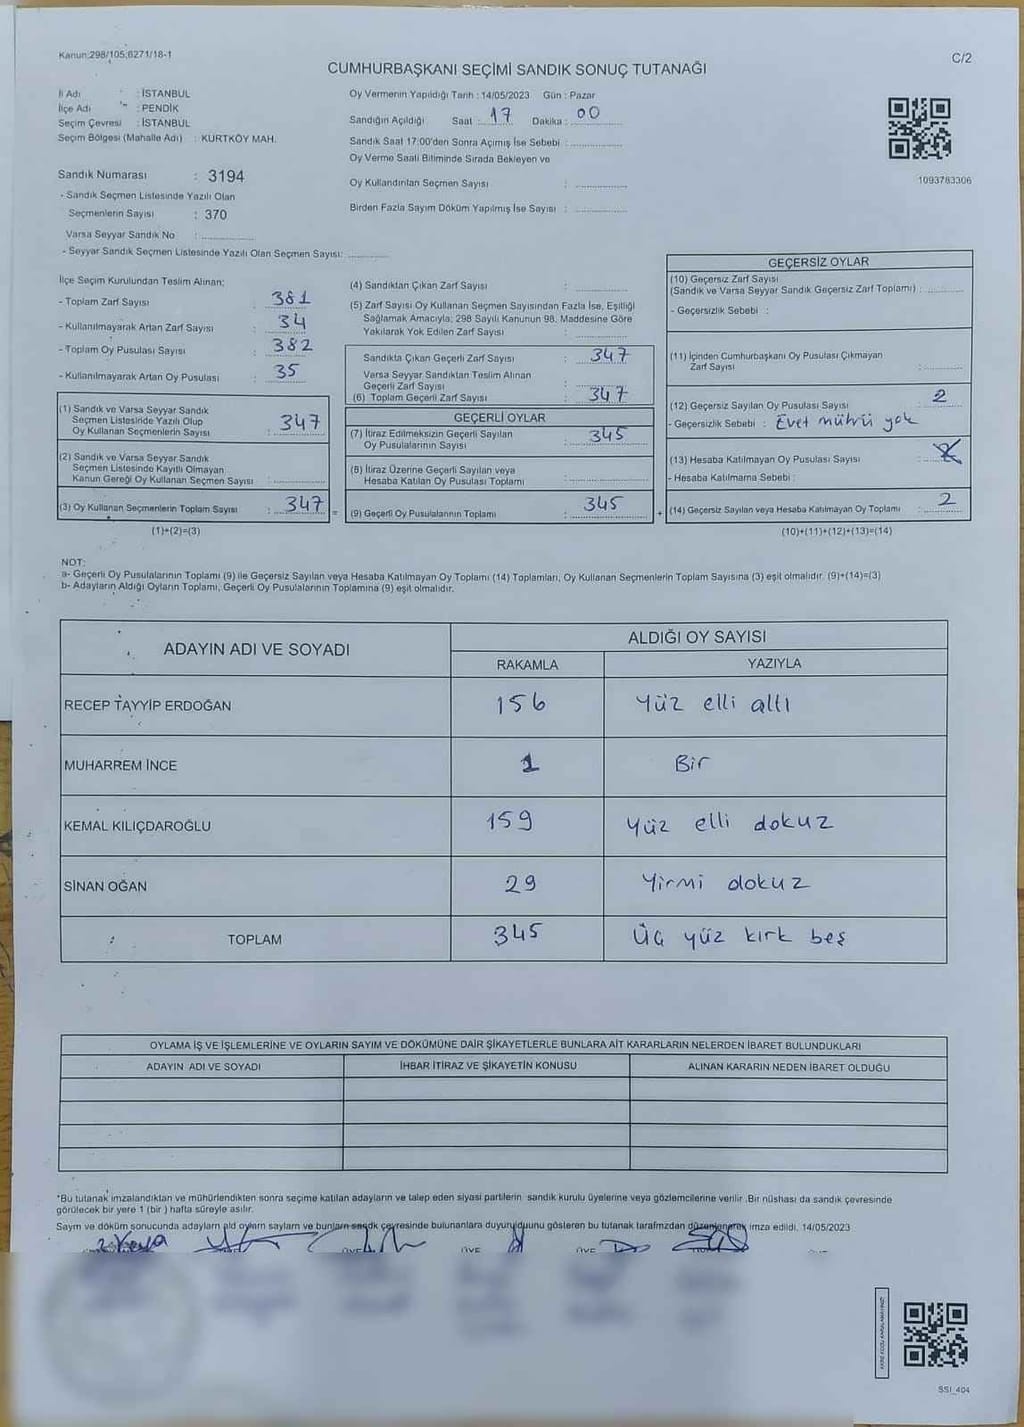 Kanun:298/105;6271/18-1
C/2
CUMHURBAŞKANI SEÇİMİ SANDIK SONUÇ TUTANAĞI
İl Adı : İSTANBUL
İlçe Adı : PENDİK
Seçim Çevresi : İSTANBUL
Seçim Bölgesi (Mahalle Adı) : KURTKÖY MAH.
Sandık Numarası : 3194
- Sandık Seçmen Listesinde Yazılı Olan
Seçmenlerin Sayısı : 370
Varsa Seyyar Sandık No :
- Seyyar Sandık Seçmen Listesinde Yazılı Olan Seçmen Sayısı:
Oy Vermenin Yapıldığı Tarih : 14/05/2023 Gün : Pazar
Sandığın Açıldığı Saat : 17 Dakika : 00
Sandık Saat 17:00'den Sonra Açılmış İse Sebebi :
Oy Verme Saati Bitiminde Sırada Bekleyen ve
Oy Kullandırılan Seçmen Sayısı :
Birden Fazla Sayım Döküm Yapılmış İse Sayısı :
1093783306
İlçe Seçim Kurulundan Teslim Alınan;
- Toplam Zarf Sayısı : 381
- Kullanılmayarak Artan Zarf Sayısı : 34
- Toplam Oy Pusulası Sayısı : 382
- Kullanılmayarak Artan Oy Pusulası : 35
(1) Sandık ve Varsa Seyyar Sandık
Seçmen Listesinde Yazılı Olup
Oy Kullanan Seçmenlerin Sayısı : 347
(2) Sandık ve Varsa Seyyar Sandık
Seçmen Listesinde Kayıtlı Olmayan
Kanun Gereği Oy Kullanan Seçmen Sayısı :
(3) Oy Kullanan Seçmenlerin Toplam Sayısı : 347 =
(1)+(2)=(3)
(4) Sandıktan Çıkan Zarf Sayısı :
(5) Zarf Sayısı Oy Kullanan Seçmen Sayısından Fazla İse, Eşitliği
Sağlamak Amacıyla; 298 Sayılı Kanunun 98. Maddesine Göre
Yakılarak Yok Edilen Zarf Sayısı :
Sandıkta Çıkan Geçerli Zarf Sayısı : 347
Varsa Seyyar Sandıktan Teslim Alınan
Geçerli Zarf Sayısı :
(6) Toplam Geçerli Zarf Sayısı : 347
GEÇERLİ OYLAR
(7) İtiraz Edilmeksizin Geçerli Sayılan
Oy Pusulalarının Sayısı : 345
(8) İtiraz Üzerine Geçerli Sayılan veya
Hesaba Katılan Oy Pusulası Toplamı :
(9) Geçerli Oy Pusulalarının Toplamı : 345 +
GEÇERSİZ OYLAR
(10) Geçersiz Zarf Sayısı
(Sandık ve Varsa Seyyar Sandık Geçersiz Zarf Toplamı) :
- Geçersizlik Sebebi :
(11) İçinden Cumhurbaşkanı Oy Pusulası Çıkmayan
Zarf Sayısı :
(12) Geçersiz Sayılan Oy Pusulası Sayısı : 2
- Geçersizlik Sebebi : Evet mührü yok
(13) Hesaba Katılmayan Oy Pusulası Sayısı :
- Hesaba Katılmama Sebebi :
(14) Geçersiz Sayılan veya Hesaba Katılmayan Oy Toplamı : 2
(10)+(11)+(12)+(13)=(14)
NOT:
a- Geçerli Oy Pusulalarının Toplamı (9) ile Geçersiz Sayılan veya Hesaba Katılmayan Oy Toplamı (14) Toplamları, Oy Kullanan Seçmenlerin Toplam Sayısına (3) eşit olmalıdır. (9)+(14)=(3)
b- Adayların Aldığı Oyların Toplamı, Geçerli Oy Pusulalarının Toplamına (9) eşit olmalıdır.
ADAYIN ADI VE SOYADI
ALDIĞI OY SAYISI
RAKAMLA YAZIYLA
RECEP TAYYİP ERDOĞAN 156 Yüz elli altı
MUHARREM İNCE 1 Bir
KEMAL KILIÇDAROĞLU 159 Yüz elli dokuz
SİNAN OĞAN 29 Yirmi dokuz
TOPLAM 345 Üç yüz kırk beş
OYLAMA İŞ VE İŞLEMLERİNE VE OYLARIN SAYIM VE DÖKÜMÜNE DAİR ŞİKAYETLERLE BUNLARA AİT KARARLARIN NELERDEN İBARET BULUNDUKLARI
ADAYIN ADI VE SOYADI İHBAR İTİRAZ VE ŞİKAYETİN KONUSU ALINAN KARARIN NEDEN İBARET OLDUĞU
*Bu tutanak imzalandıktan ve mühürlendikten sonra seçime katılan adayların ve talep eden siyasi partilerin sandık kurulu üyelerine veya gözlemcilerine verilir .Bir nüshası da sandık çevresinde
görülecek bir yere 1 (bir ) hafta süreyle asılır.
Sayım ve döküm sonucunda adayların bu tutanak tarafımızdan düzenlenerek imza edildi. 14/05/2023
ÜYE ÜYE
SSI_404